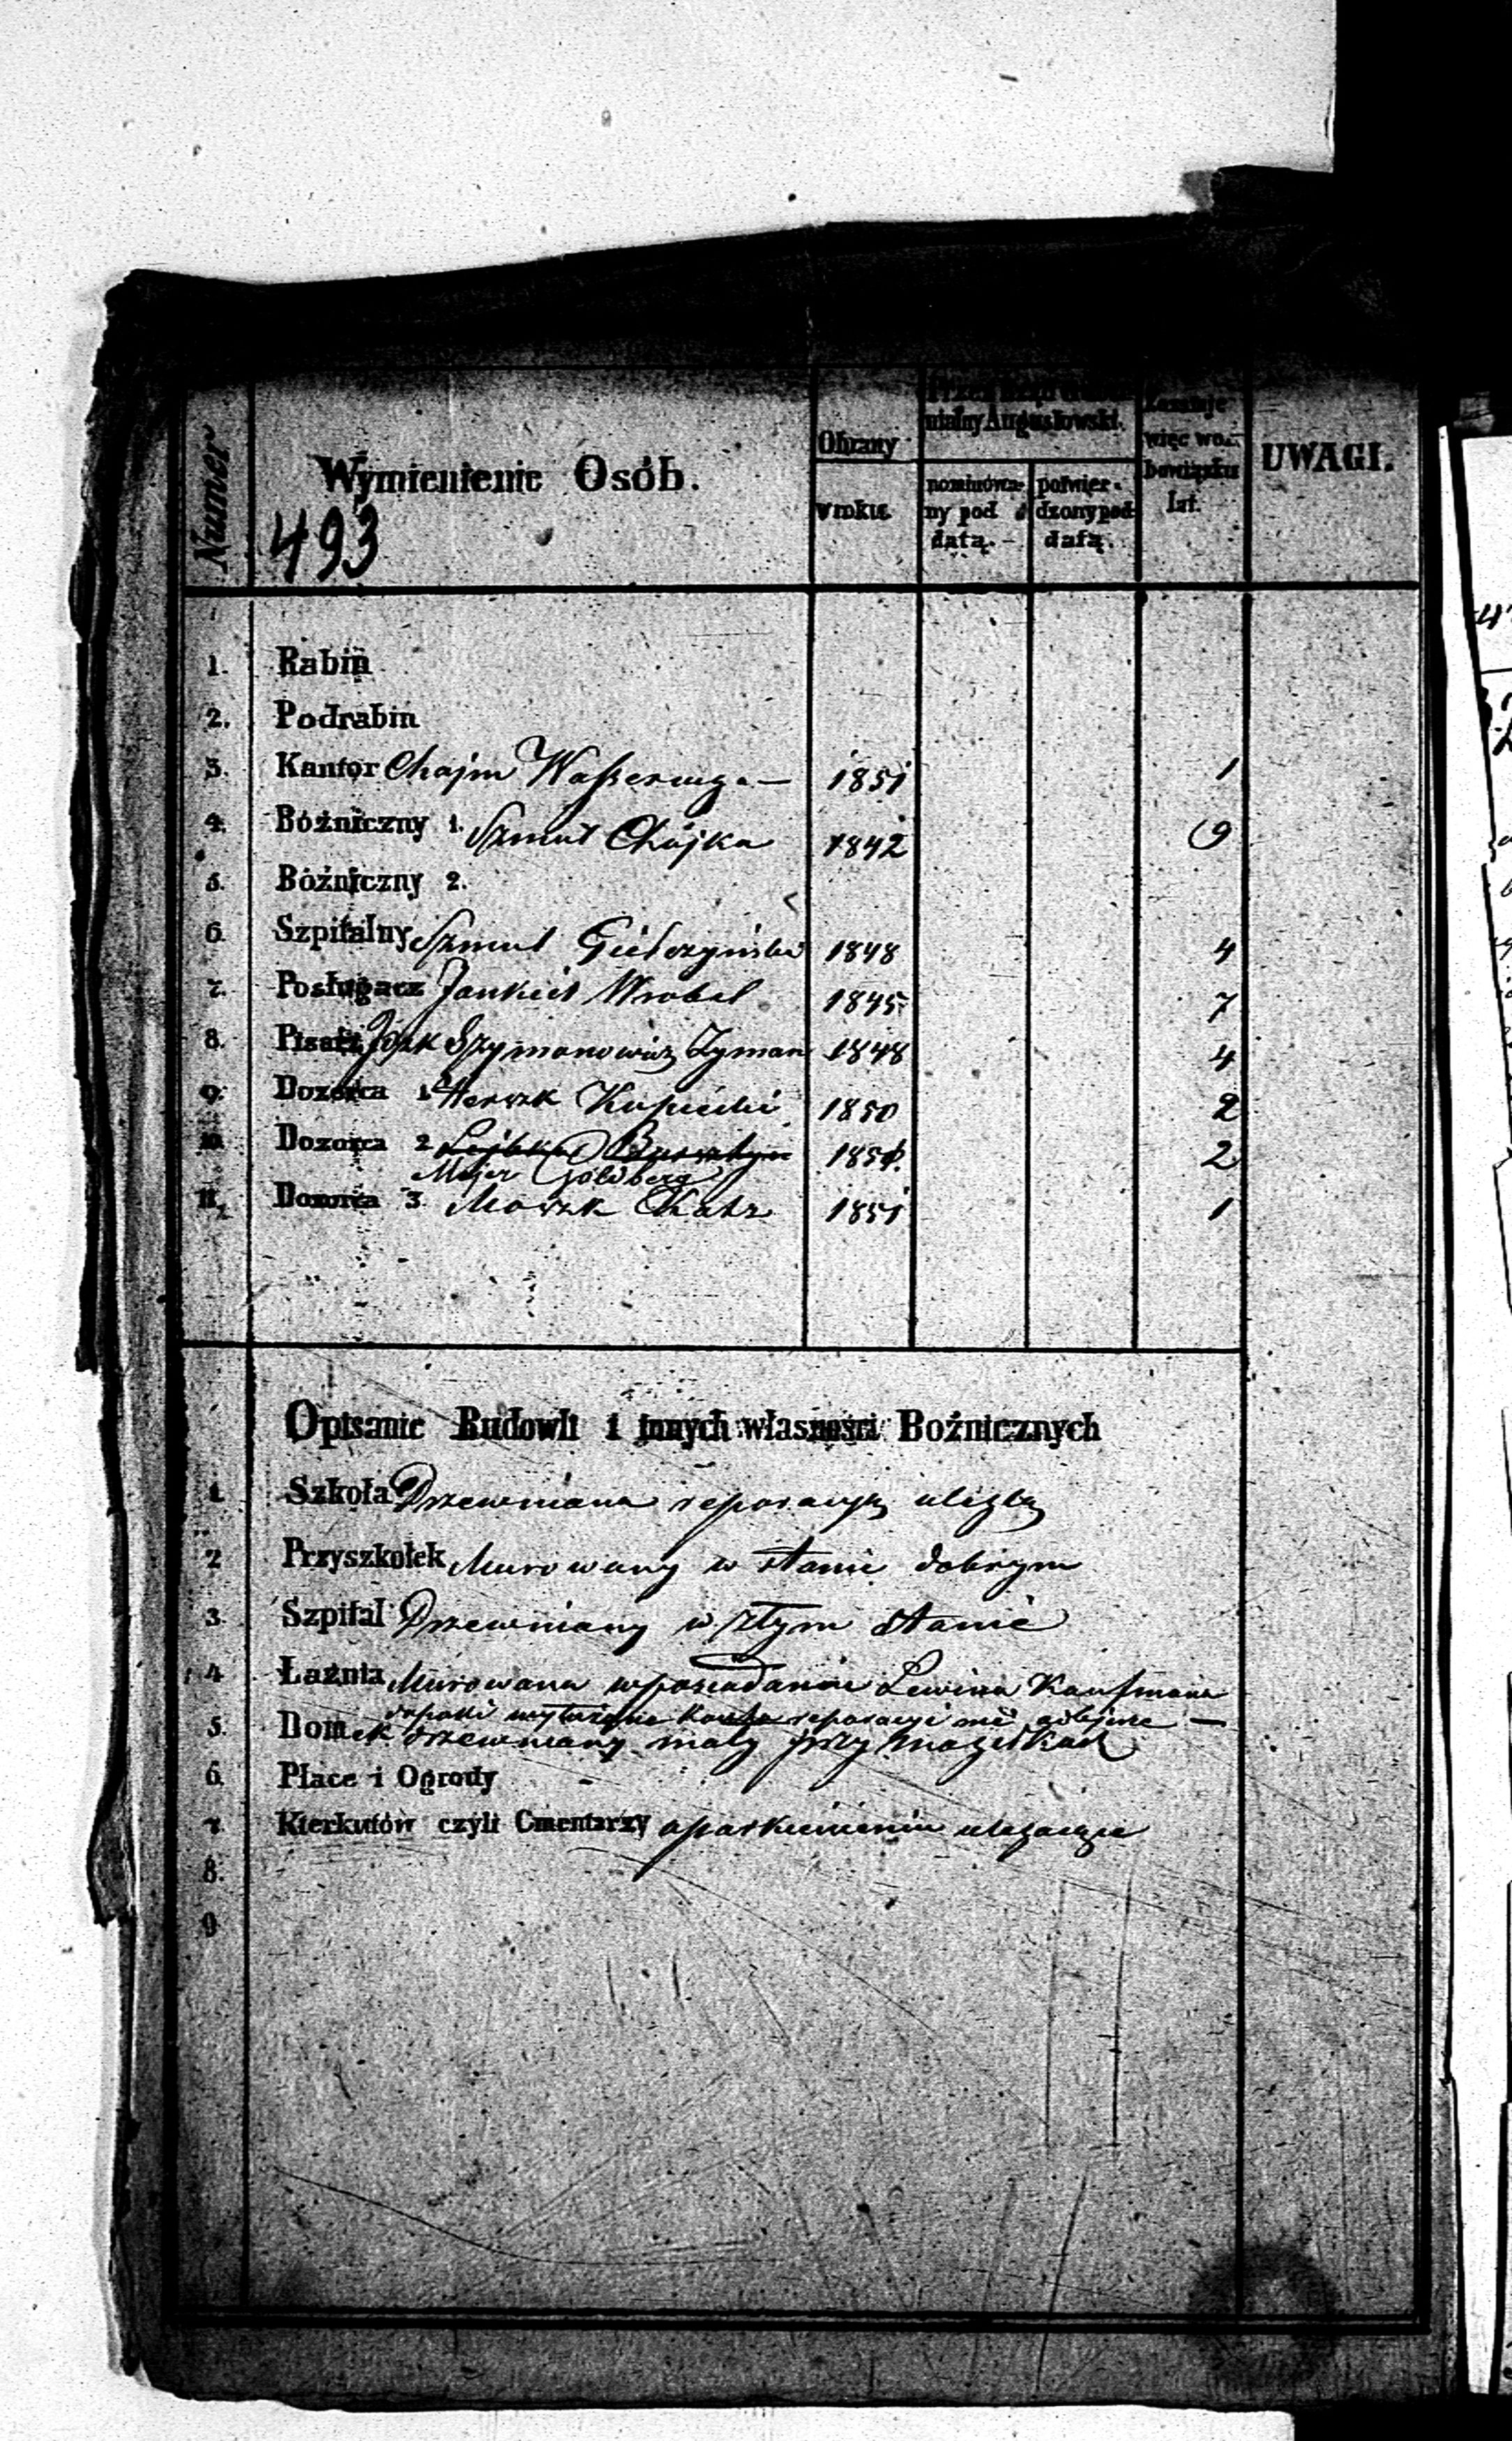 Numer
Wymienienie Osób.
493
Obrany
w roku
Przez Rząd Guber-
nialny Augustowski.
nominowa-
ny pod
datą.
potwier-
dzony pod
datą.
Zostaje
więc w o-
bowiązku
lat.
UWAGI.
1. Rabin
2. Podrabin
3. Kantor Chajm 1851 1
4. Bóżniczny 1. Szmul Chójka 1842 9
5. Bóżniczny 2.
6. Szpitalny Szmul 1848 4
7. Posługacz Jankiel Wrobel 1845 7
8. Pisarz Josk Szymonowicz Zyman 1848 4
9. Dozorca 1. Herszk Kupiecki 1850 2
10. Dozorca 2. Lejbka Bursztyn 185 2
Mejer Goldberg
11. Dozorca 3. Moszk Katz 1851 1
Opisanie Budowli i innych własności Bożnicznych
1. Szkoła Drzewniana reperacyi uległa
2 Przyszkołek Murowany w stanie dobrym
3. Szpital Drzewniany w złym stanie
4 Łaźnia Murowana w posiadaniu Lewina Kaufmana
dopóki wyłożone koszta reperacyi nie odbierze —
5. Domek drzewniany mały przy mogiłkach
6. Place i Ogrody
7. Kierkutów czyli Cmentarzy oparkanieniu ulegające
8.
9